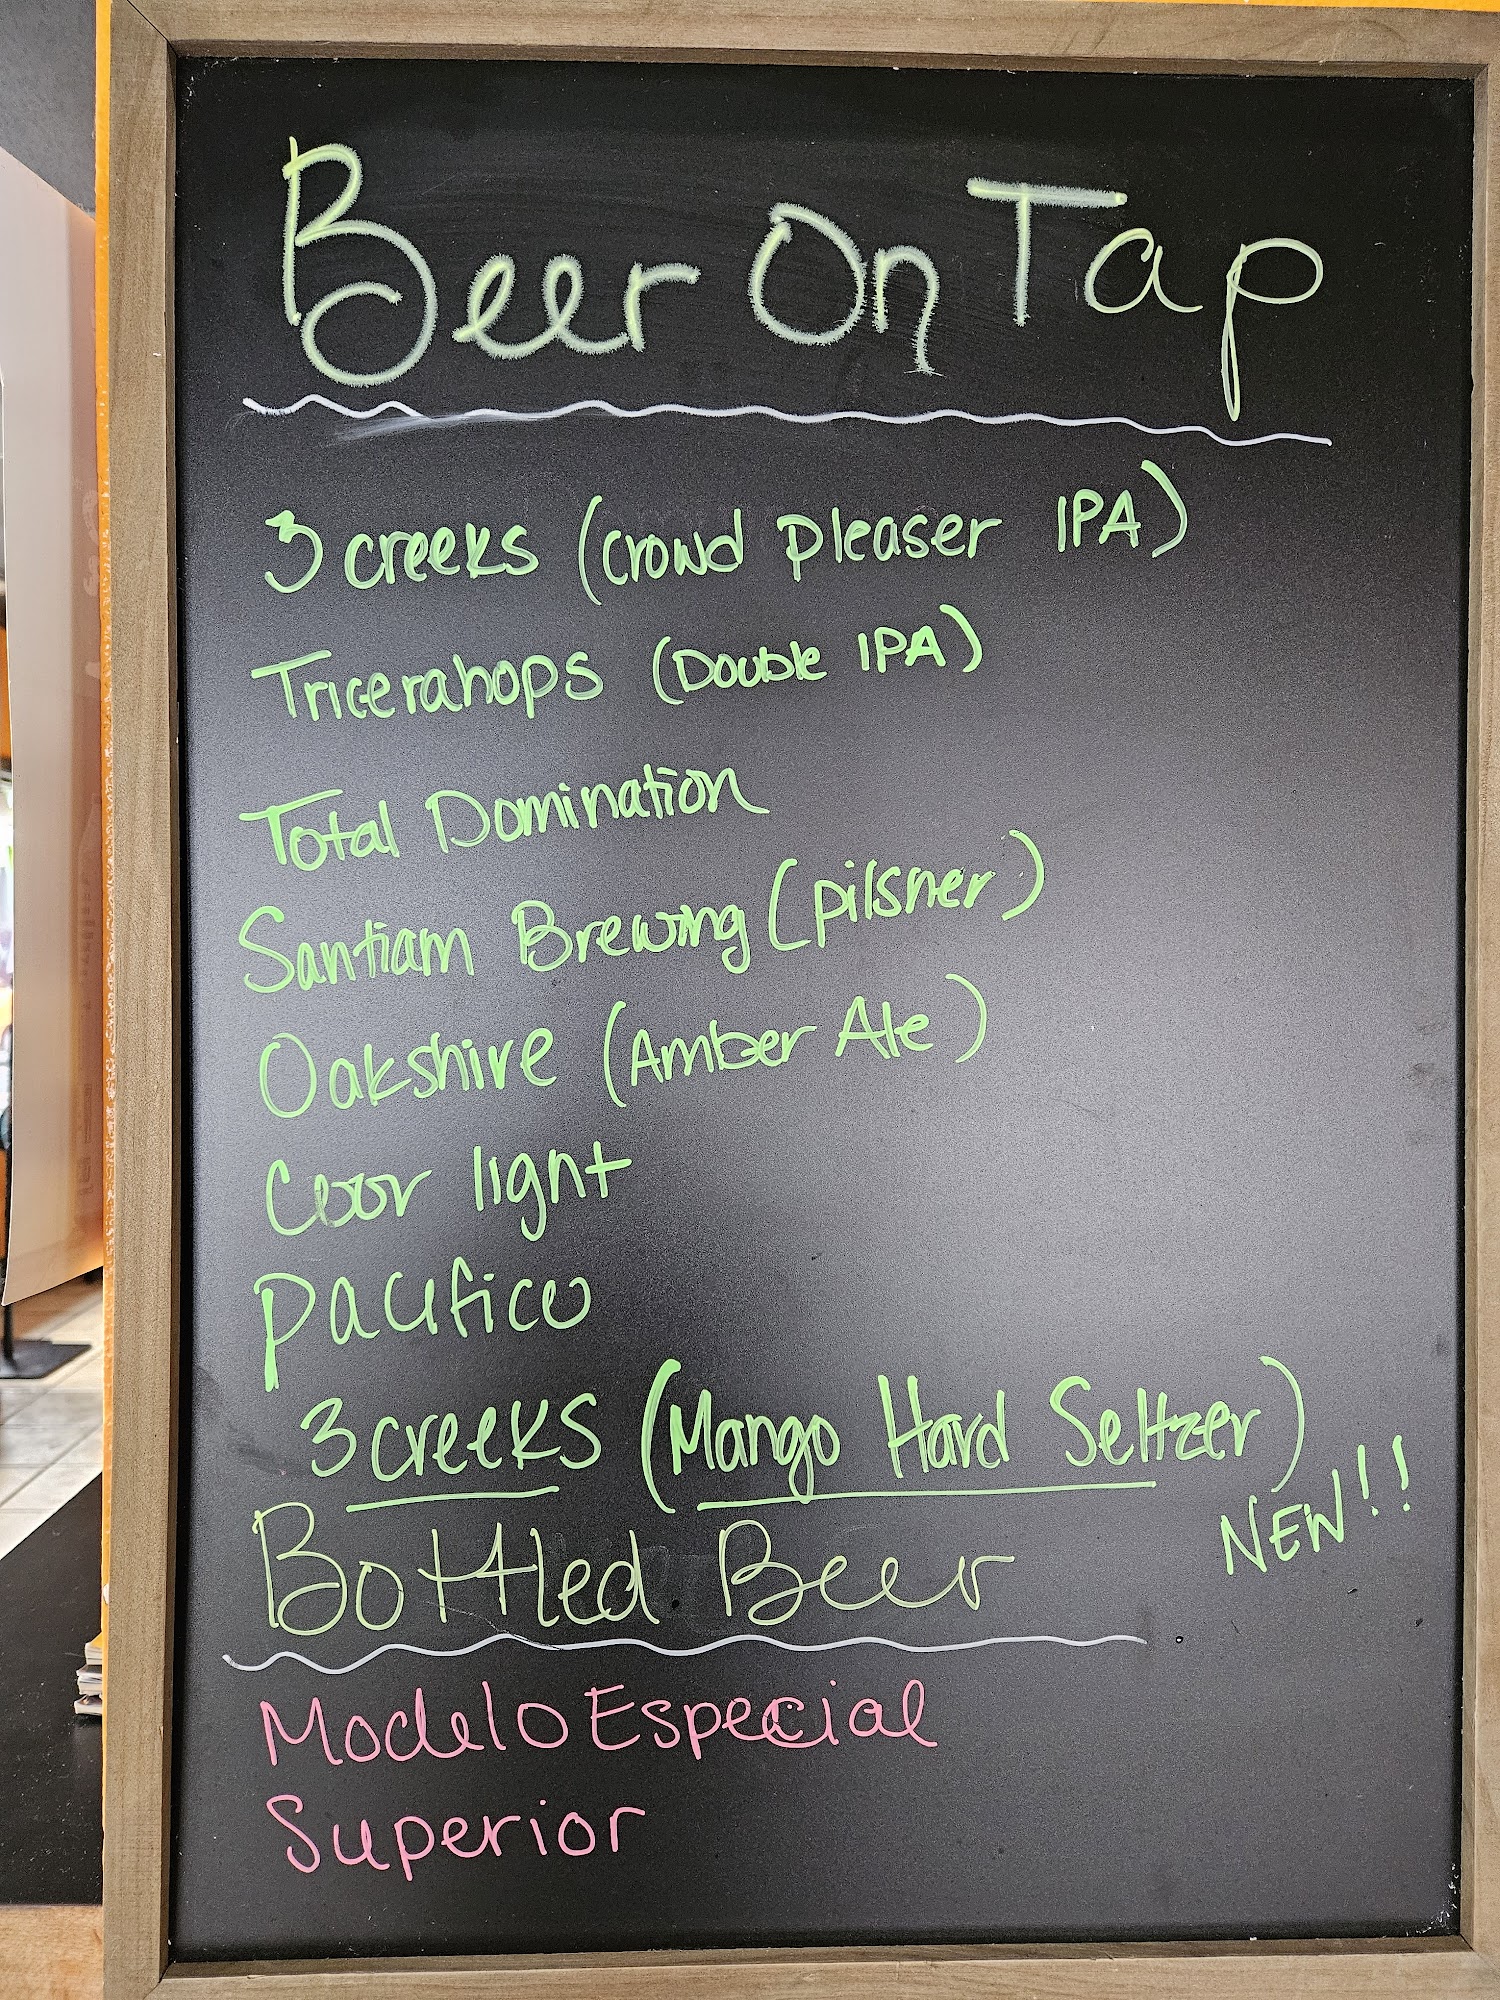 Beer On Tap
3 creeks (crowd pleaser IPA)
Tricerahops (Double IPA)
Total Domination
Santiam Brewing (pilsner)
Oakshire (Amber Ale)
Coor light
pacifico
3 creeks (Mango Hard Seltzer)
NEW!!
Bottled Beer
Modelo Especial
Superior